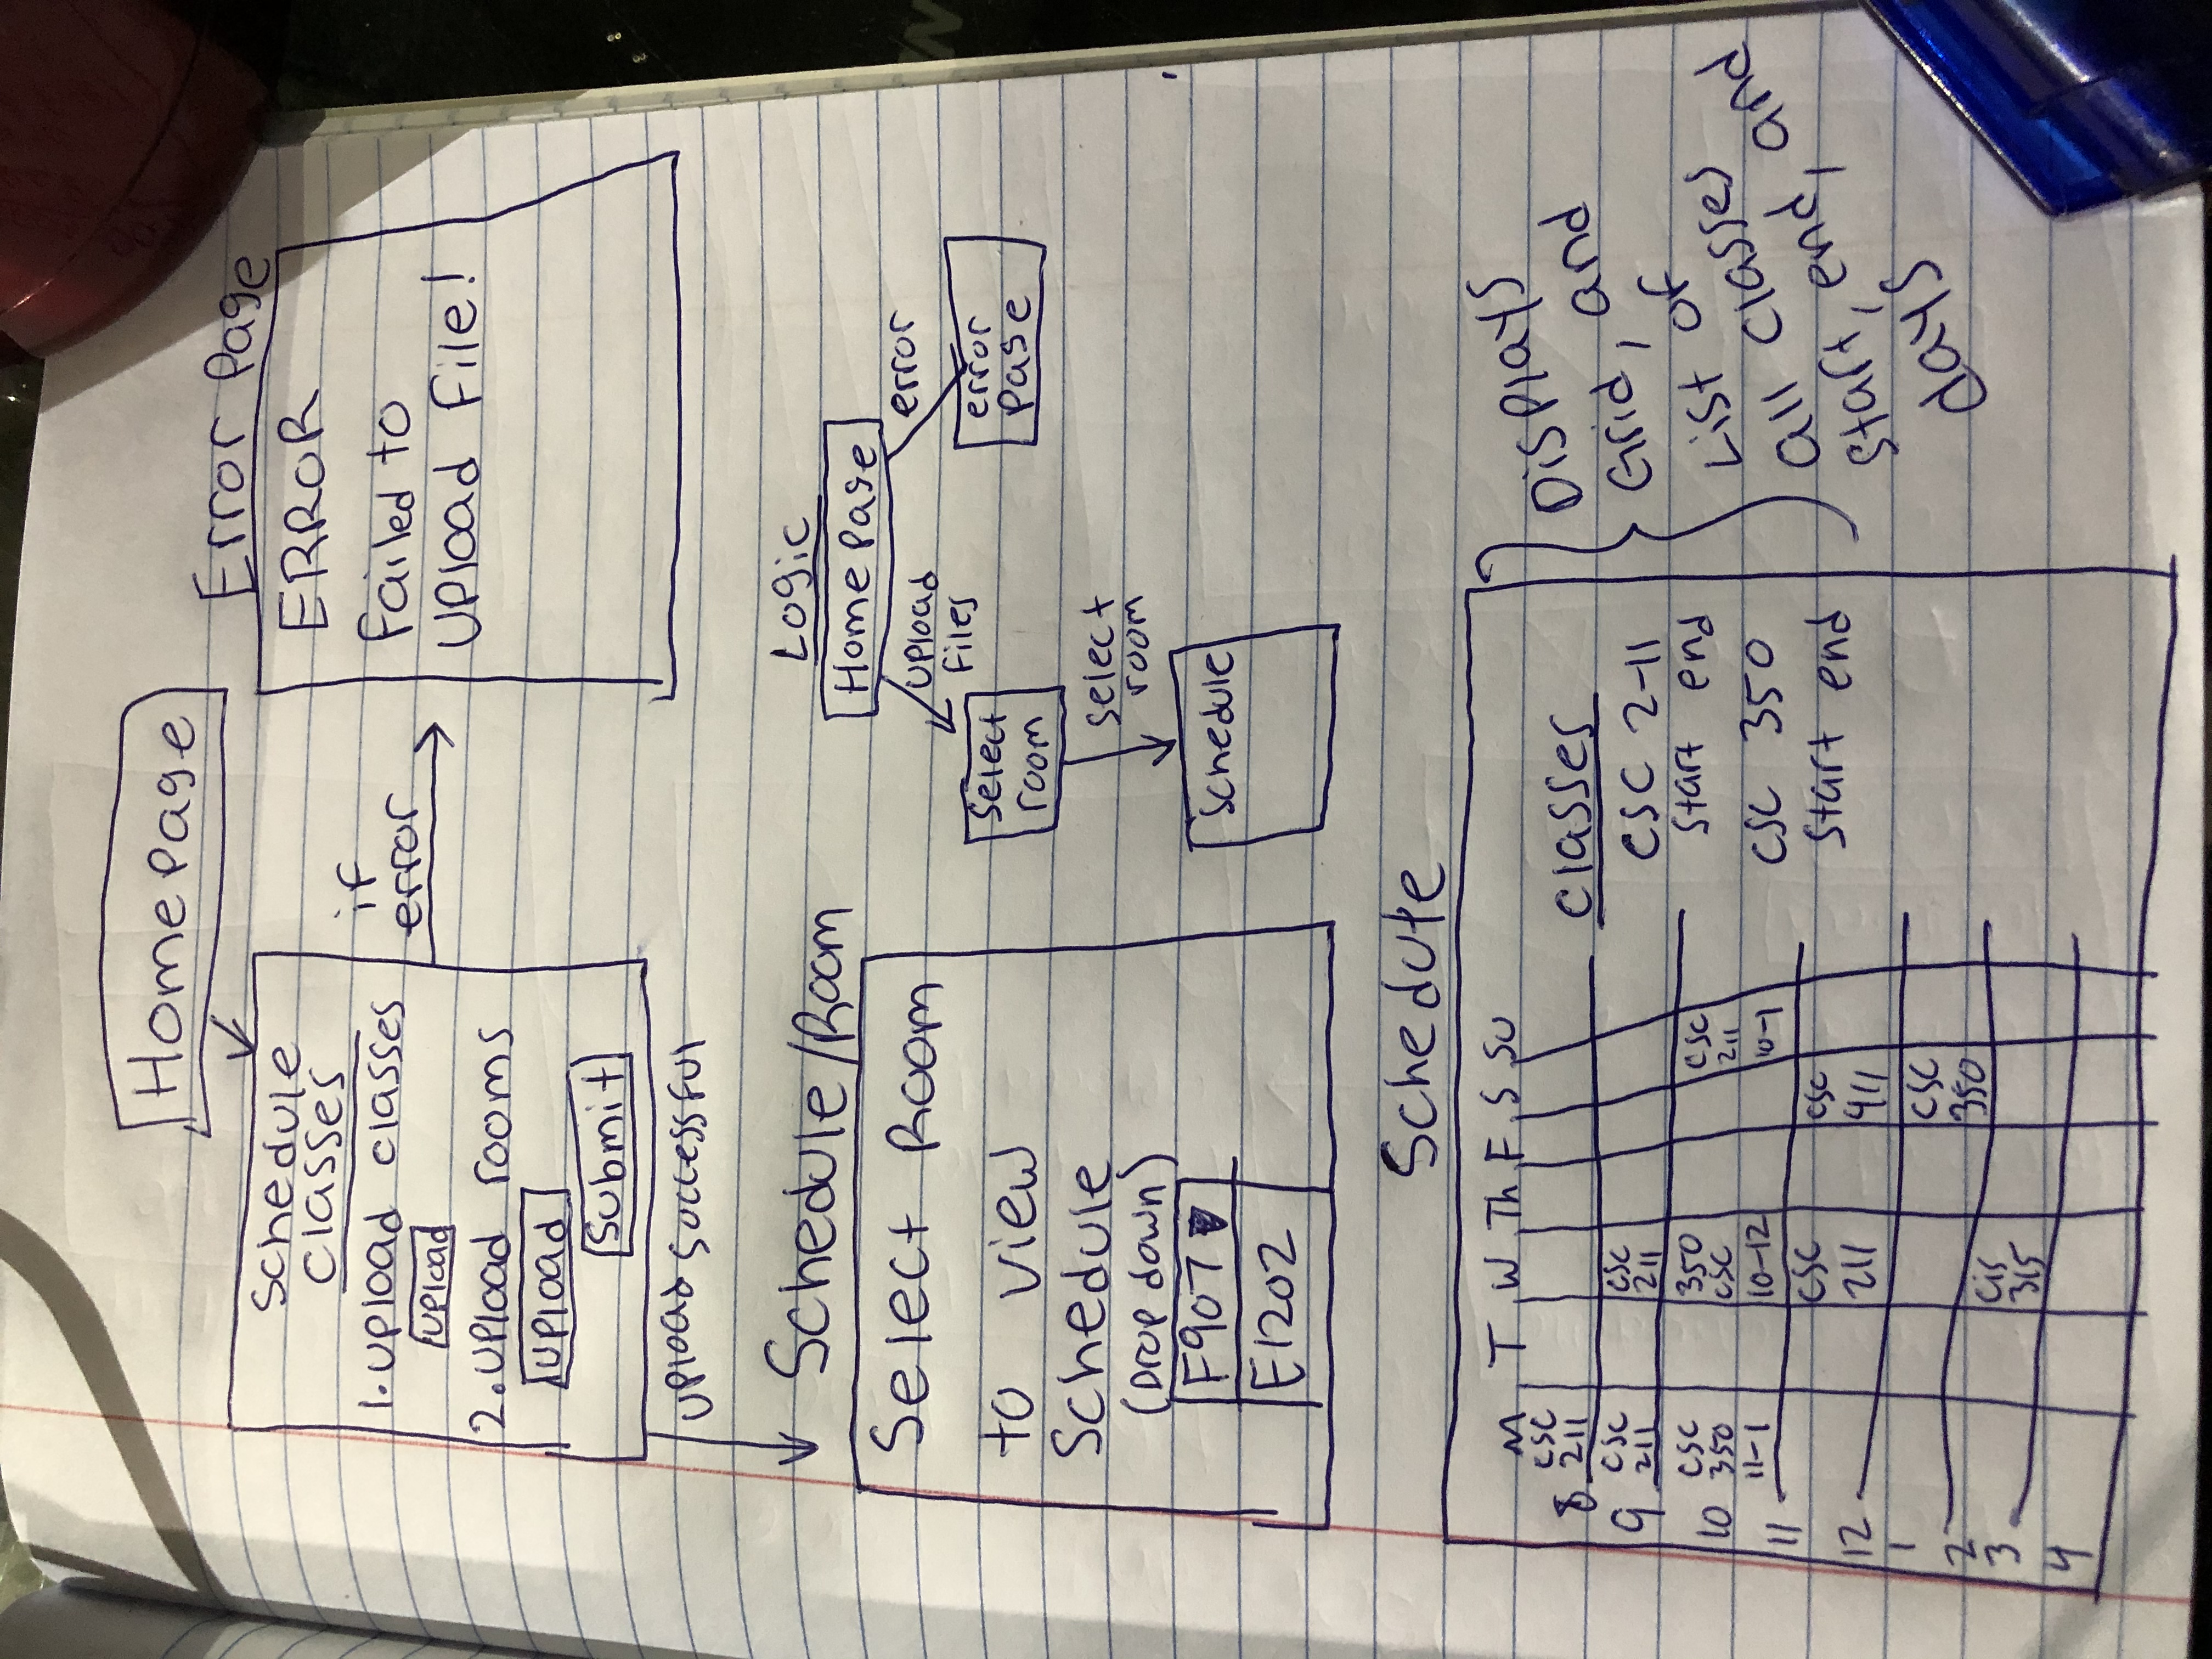 Home Page
Schedule
classes
1. Upload classes
Upload
2. Upload rooms
Upload
Submit
if
error
Error Page
ERROR
Failed to
Upload File!
Upload Successful
Schedule/Room
Select Room
to view
Schedule
(Drop down)
F907
E1202
Logic
Home Page
Upload
Files
error
Select
room
error
page
select
room
Schedule
Schedule
M T W Th F S SU
8 CSC
211
9 CSC
211
CSC
211
10 CSC
350
11-1
350
CSC
10-12
CSC
211
10-1
11
CSC
211
CSC
411
12
1
CSC
350
2
3
Cis
315
4
Classes
CSC 2-11
Start end
CSC 350
Start end
Displays
Grid, and
List of
all classes
start, end, and
days